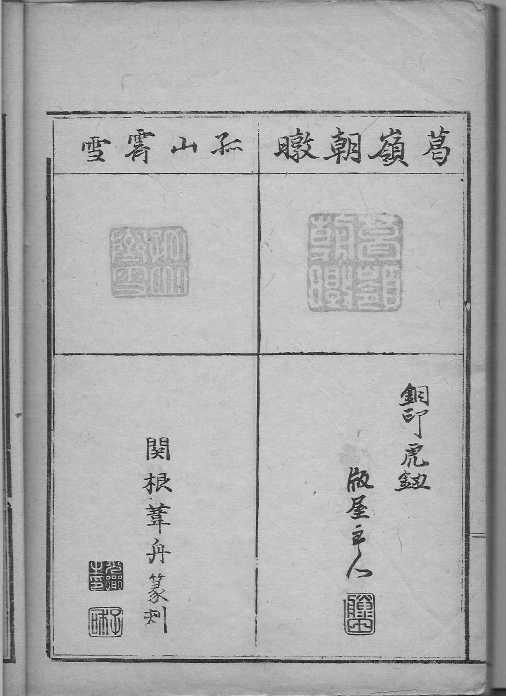 葛嶺朝暾
銅印虎鈕
版屋主人
孤山霽雪
関根葦舟篆刻